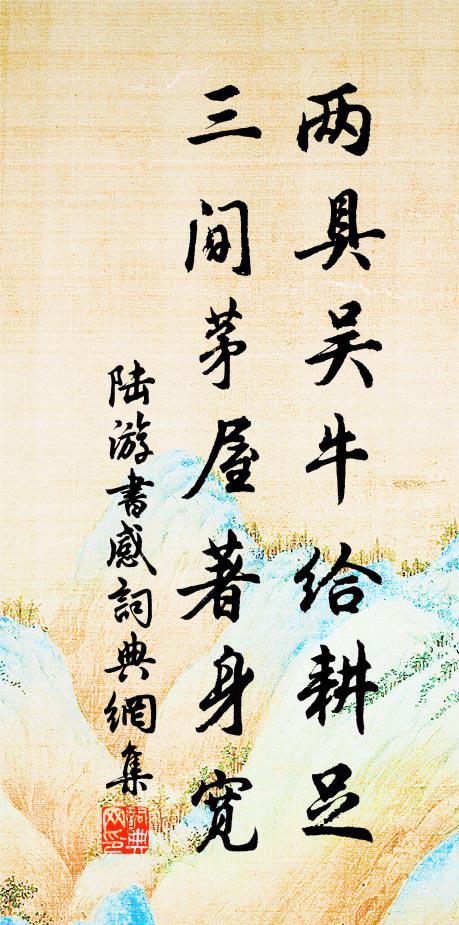 两具吴牛给耕足
三间茅屋著身宽
陆游书感詞典網集
詞典网印